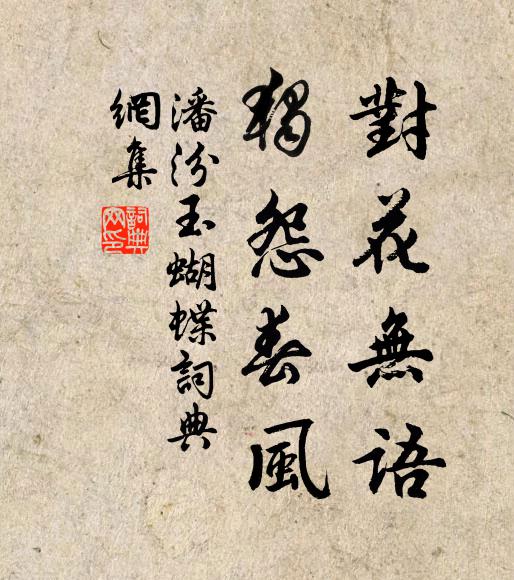 對花無語
獨怨春風
潘汾玉蝴蝶詞典
網集
詞典
网印